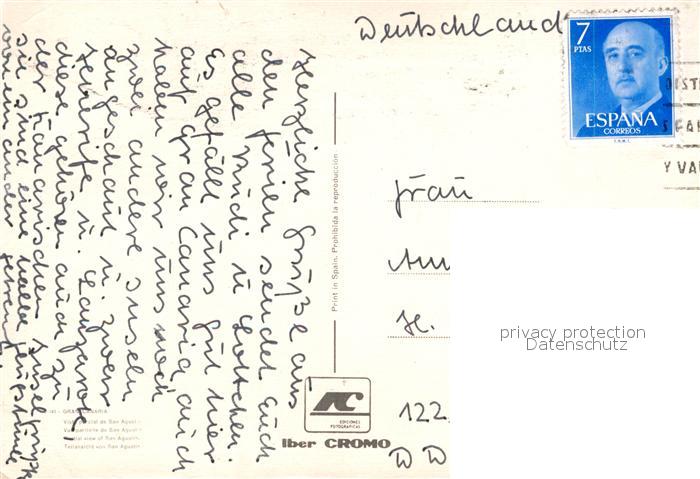 Deutschland
7
PTAS
ESPAÑA
CORREOS
Y VA
Herzliche Grüße aus
den Ferien sendet Euch
alle Rudi u. Lottchen.
Es gefällt uns gut hier
auf Gran Canaria, auch
haben wir uns noch
zwei andere Inseln
angeschaut u. zwar
Teneriffa u. Lanzarote,
diese gehören auch zu
der kanarischen Inselgruppe
sie sind eine halbe Flugstunde
voneinander
Print in Spain. Prohibida la reproducción
Frau
H.
122
GRAN CANARIA
Vista parcial de San Agustín
Vue partielle de San Agustin
Partial view of San Agustin
Teilansicht von San Agustin
EDICIONES
FOTOGRAFICAS
Iber CROMO
privacy protection
Datenschutz